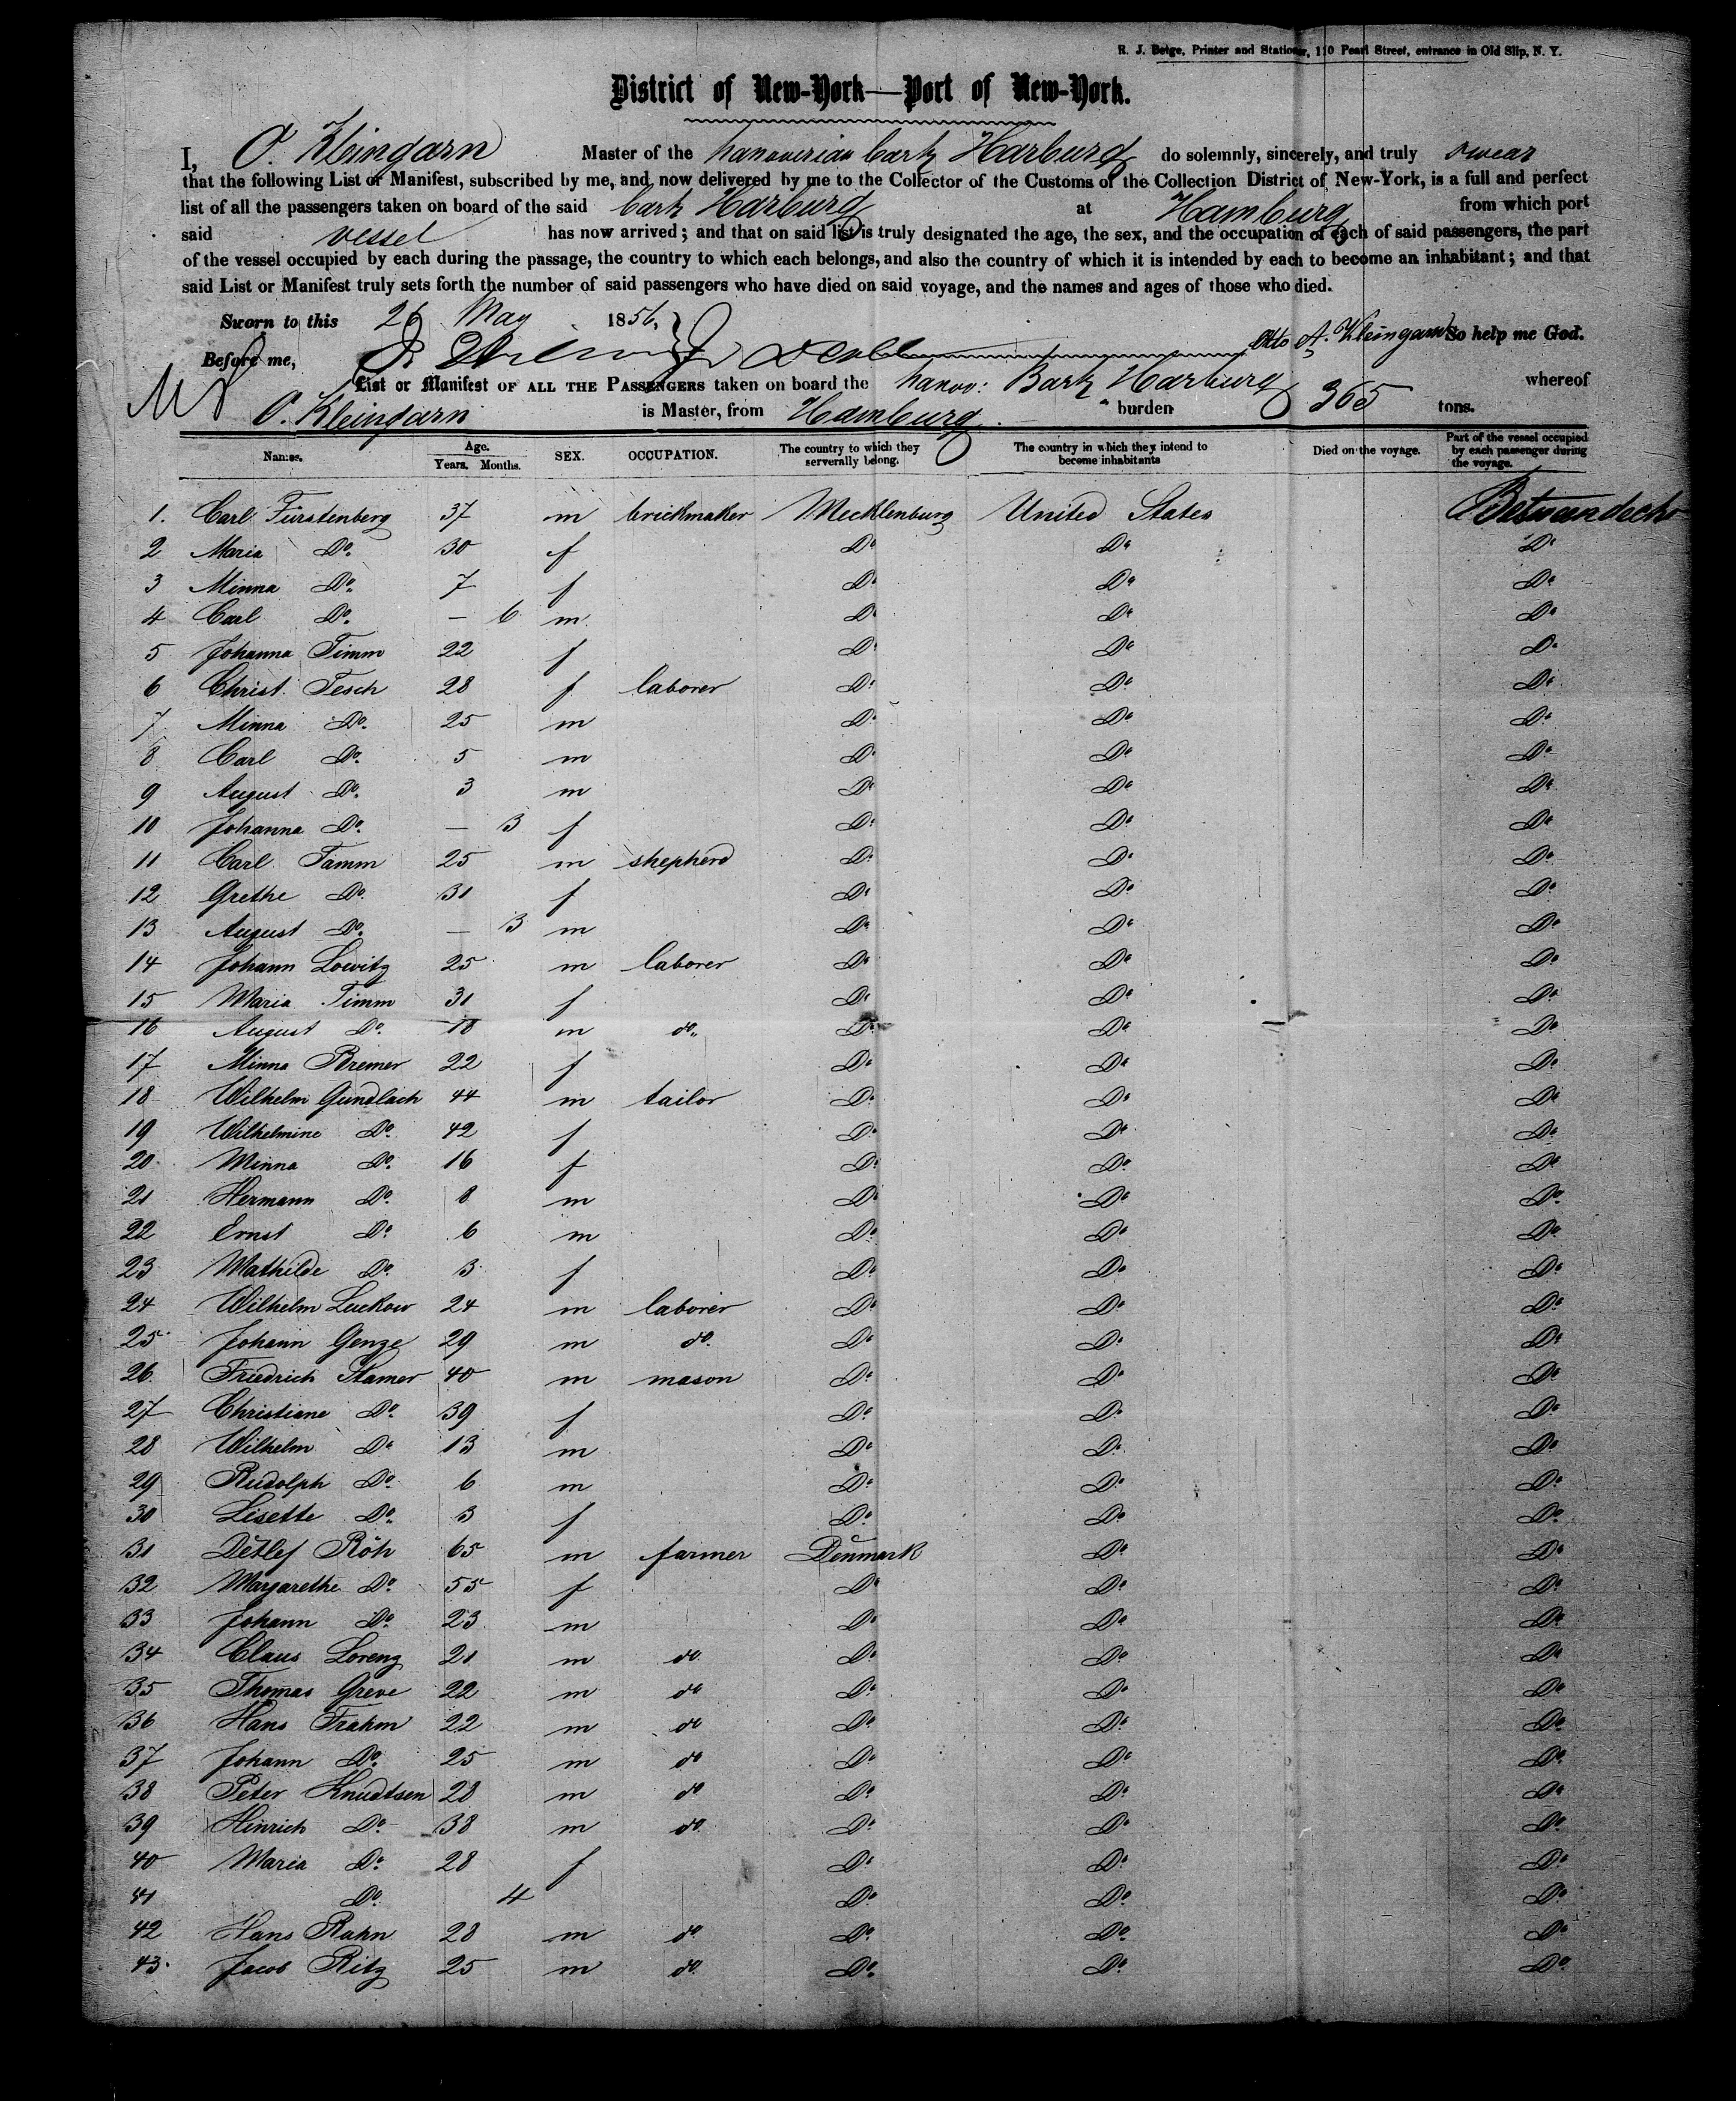 R. J. Betge, Printer and Stationer, 110 Pearl Street, entrance in Old Slip, N. Y.
District of New-York—Port of New-York.
I, O. Kleingarn Master of the hanoverian bark Harburg do solemnly, sincerely, and truly swear
that the following List or Manifest, subscribed by me, and now delivered by me to the Collector of the Customs of the Collection District of New-York, is a full and perfect
list of all the passengers taken on board of the said bark Harburg at Hamburg from which port
said vessel has now arrived; and that on said list is truly designated the age, the sex, and the occupation of each of said passengers, the part
of the vessel occupied by each during the passage, the country to which each belongs, and also the country of which it is intended by each to become an inhabitant; and that
said List or Manifest truly sets forth the number of said passengers who have died on said voyage, and the names and ages of those who died.
Sworn to this 26 May 1856, Otto A. Kleingarn So help me God.
Before me,
List or Manifest OF ALL THE PASSENGERS taken on board the hanov: Bark Harburg whereof
O. Kleingarn is Master, from Hamburg. burden 365 tons.
Names. Age. Years. Months. SEX. OCCUPATION. The country to which they serverally belong. The country in which they intend to become inhabitants Died on the voyage. Part of the vessel occupied by each passenger during the voyage.
1. Carl Fürstenberg 37 m brickmaker Mecklenburg United States Betweendecks
2 Maria Do. 30 f Do Do Do
3 Minna Do. 7 f Do Do Do
4 Carl Do. — 6 m. Do Do Do
5 Johanna Timm 22 f Do Do Do
6 Christ. Tesch 28 f laborer Do Do Do
7 Minna Do. 25 m Do Do Do
8 Carl Do. 5 m Do Do Do
9 August Do. 3 m Do Do Do
10 Johanna Do. — 3 f Do Do Do
11 Carl Tamm 25 m shepherd Do Do Do
12 Grethe Do. 31 f Do Do Do
13 August Do. — 3 m Do Do Do
14 Johann Lowitz 25 m laborer Do Do Do
15 Maria Timm 31 f Do Do Do
16 August Do. 18 m do. Do Do Do
17 Minna Bremer 22 f Do Do Do
18 Wilhelm Gundlach 44 m tailor Do Do Do
19 Wilhelmine Do. 42 f Do Do Do
20 Minna Do. 16 f Do Do Do
21 Hermann Do. 8 m Do Do Do
22 Ernst Do. 6 m Do Do Do
23 Mathilde Do. 3 f Do Do Do
24 Wilhelm Luckow 24 m laborer Do Do Do
25 Johann Genze 29 m do. Do Do Do
26 Friedrich Stamer 40 m mason Do Do Do
27 Christiane Do. 39 f Do Do Do
28 Wilhelm Do 13 m Do Do Do
29 Rudolph Do. 6 m Do Do Do
30 Lisette Do. 3 f Do Do Do
31 Detlef Röh 65 m farmer Denmark Do Do
32 Margarethe Do. 55 f Do Do Do
33 Johann Do. 23 m Do Do Do
34 Claus Lorenz 21 m do. Do Do Do
35 Thomas Greve 22 m do Do Do Do
36 Hans Frahm 22 m do Do Do Do
37 Johann Do. 25 m do Do Do Do
38 Peter Knudtsen 28 m do Do Do Do
39 Hinrich Do. 38 m do. Do Do Do
40 Maria Do. 28 f Do Do Do
41 Do. 4 Do Do Do
42 Hans Rahn 28 m do Do Do Do
43. Jacob Ritz 25 m do. Do. Do Do